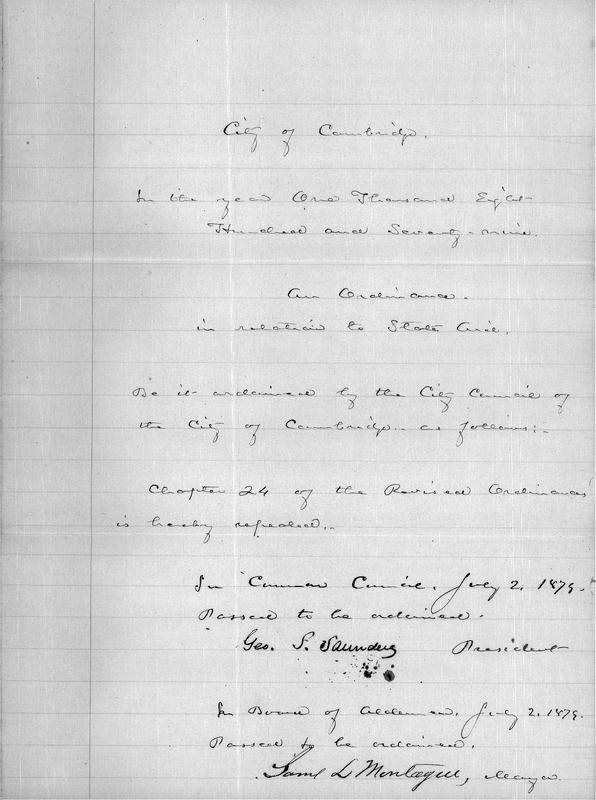 City of Cambridge.
In the year One Thousand Eight
Hundred and Seventy-nine.
An Ordinance.
in relation to State Aid.
Be it ordained by the City Council of
the City of Cambridge.. as follows:-
Chapter 24 of the Revised Ordinances
is hereby repealed..
In Common Council. July 2, 1879.
Passed to be ordained.
Geo. S. Saunders President
In Board of Aldermen. July 2, 1879.
Passed to be ordained.
Saml L Montague, Mayor